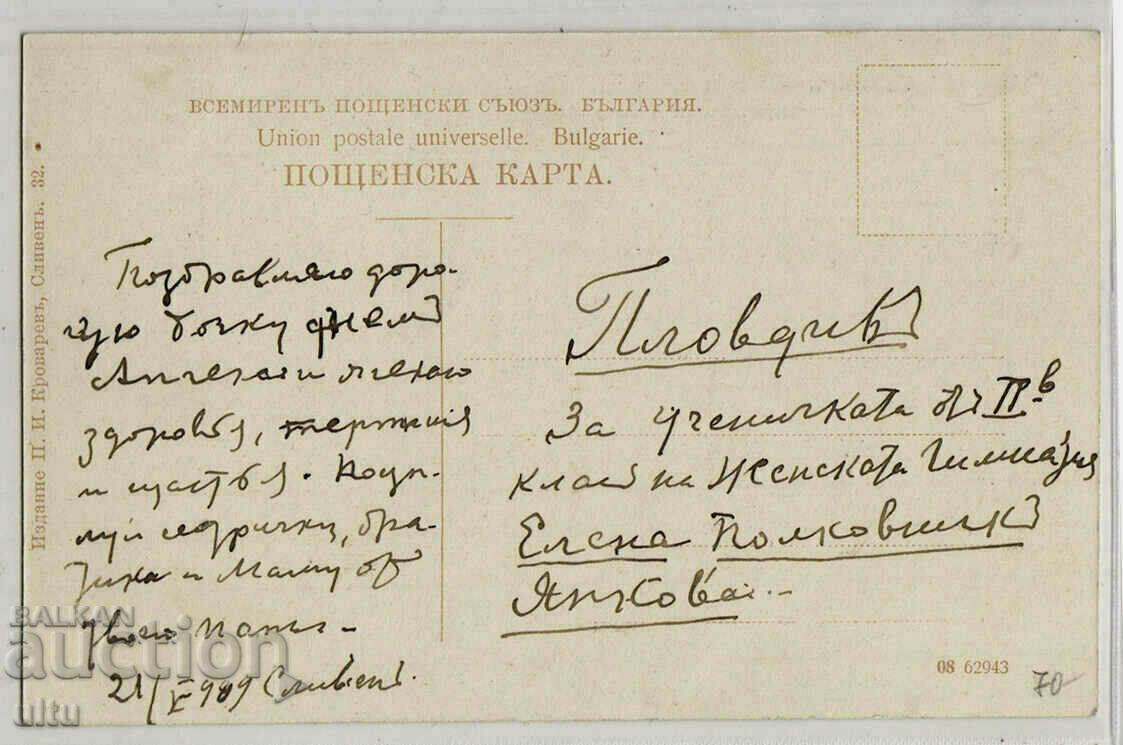 ВСЕМИРЕНЪ ПОЩЕНСКИ СЪЮЗЪ. БЪЛГАРИЯ.
Union postale universelle. Bulgarie.
ПОЩЕНСКА КАРТА.
Издание П. И. Кроваревъ, Сливенъ. 32.
Поздравляю доро-
гую дочку
здоровья,
и щастья. Поцл-
луй сестрички, бра-
тика и Маму от
твого папы -
21/V 909 Сливенъ.
Пловдивъ
За ученичката отъ IIв
класъ на Женската Гимназия
Елена Полковникъ
Янкова..
08 62943
70
BALKAN
auction
ultu